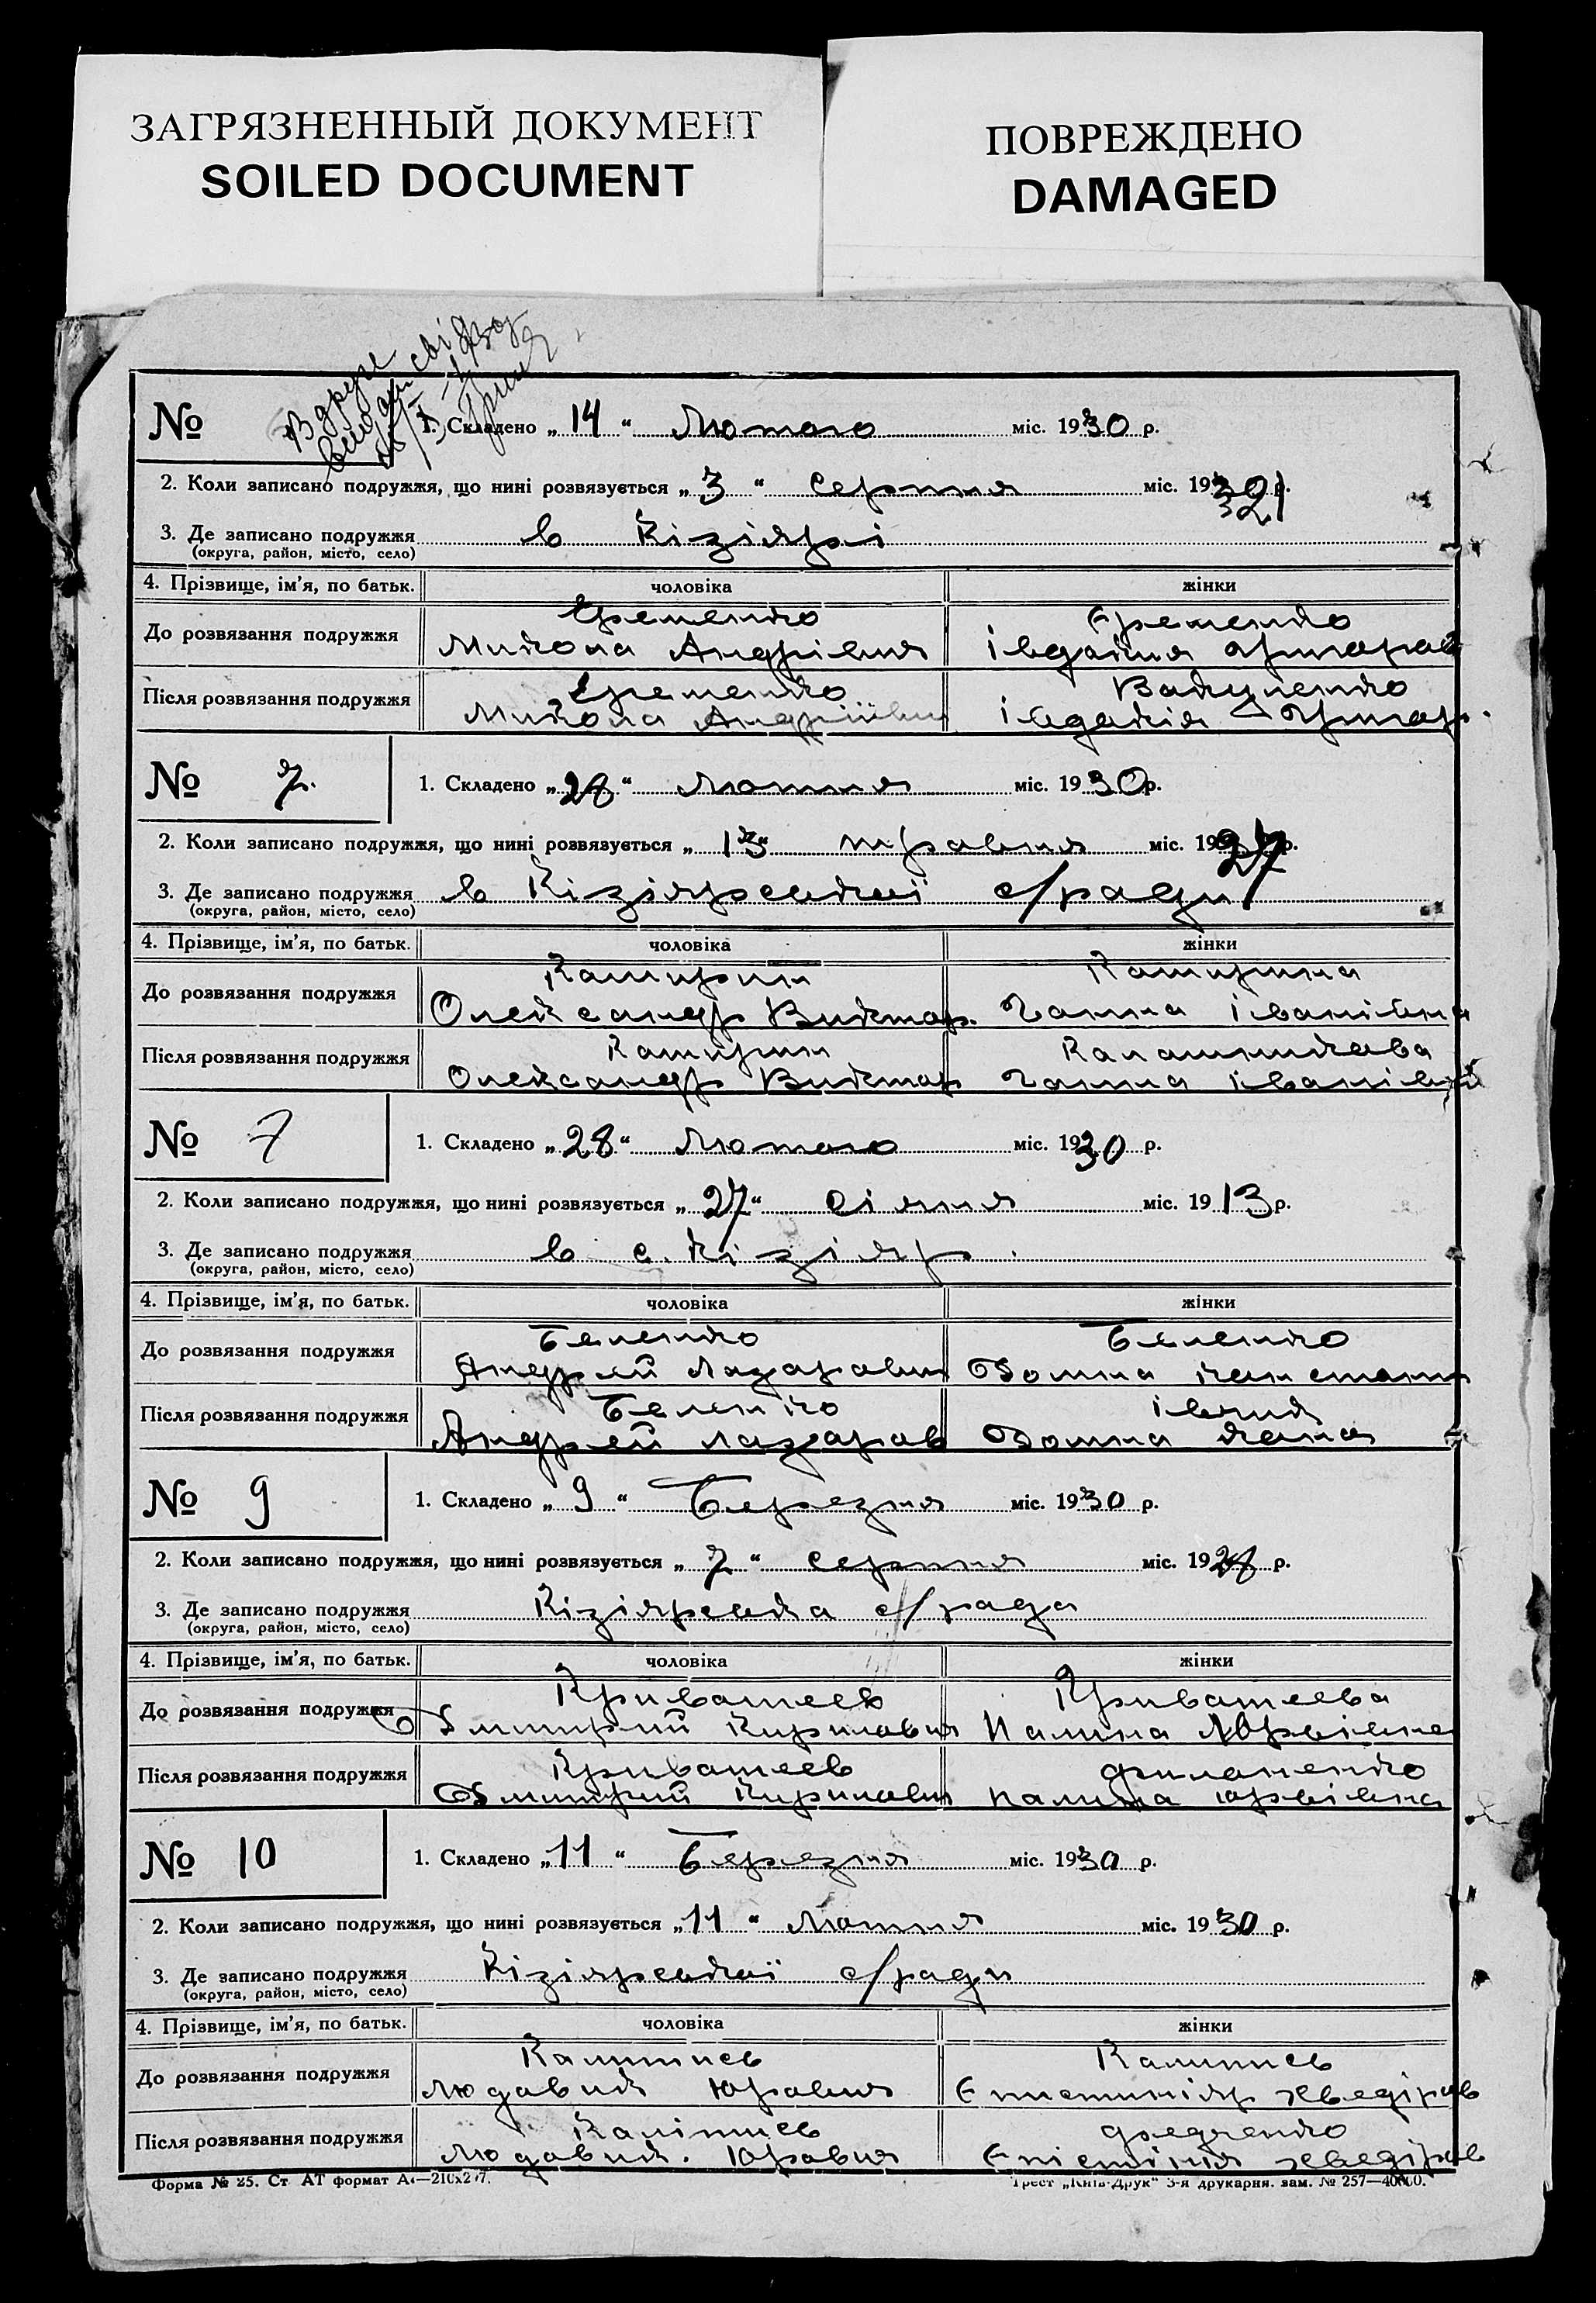 ЗАГРЯЗНЕННЫЙ ДОКУМЕНТ
SOILED DOCUMENT
ПОВРЕЖДЕНО
DAMAGED
Вдруге
№ 1. Складено „ 14 “ Лютого міс. 1930 р.
2. Коли записано подружжя, що нині розвязується „ 3 “ Серпня міс. 19 р.
3. Де записано подружжя в Кізіярі
(округа, район, місто, село)
4. Прізвище, ім'я, по батьк. чоловіка жінки
Єременко Єременко
До розвязання подружжя
Микола Андрієвич Івдакия
Єременко Вакуленко
Після розвязання подружжя
Микола Андрієвич Івдакія
№ 7. 1. Складено „ 28 “ Лютня міс. 1930 р.
2. Коли записано подружжя, що нині розвязується „ 13 “ травня міс. 1927 р.
3. Де записано подружжя в Кізіярській с/ради
(округа, район, місто, село)
4. Прізвище, ім'я, по батьк. чоловіка жінки
До розвязання подружжя
Олександр Виктор. Ганна Іванівна
Після розвязання подружжя
Олександр Виктор Ганна Іванівна
№ 7 1. Складено „ 28 “ Лютого міс. 1930 р.
2. Коли записано подружжя, що нині розвязується „ 27 “ січня міс. 1913 р.
3. Де записано подружжя в с. Кізіяр.
(округа, район, місто, село)
4. Прізвище, ім'я, по батьк. чоловіка жінки
Беленко Беленко
До розвязання подружжя
Андрей Лазарович Домна
Беленко
Після розвязання подружжя
Андрей Лазаров Домна
№ 9 1. Складено „ 9 “ Березня міс. 1930 р.
2. Коли записано подружжя, що нині розвязується „ 7 “ серпня міс. 19 р.
3. Де записано подружжя Кізіярська с/рада
(округа, район, місто, село)
4. Прізвище, ім'я, по батьк. чоловіка жінки
Кривашеев Кривашеева
До розвязання подружжя
Дмитрий Кирилович Галина Юрьівна
Кривашеев Филоненко
Після розвязання подружжя
Дмитрий Кирилович Галина Юрьівна
№ 10 1. Складено „ 11 “ Березня міс. 1930 р.
2. Коли записано подружжя, що нині розвязується „ 11 “ Лютня міс. 1930 р.
3. Де записано подружжя Кізіярської с/ради
(округа, район, місто, село)
4. Прізвище, ім'я, по батьк. чоловіка жінки
До розвязання подружжя
Людавик Юрович
Федченко
Після розвязання подружжя
Людавик. Юрович
Форма № 25. Ст АТ формат А4—210x297.
Трест „Київ-Друк“ 3-я друкарня. зам. № 257—40000.